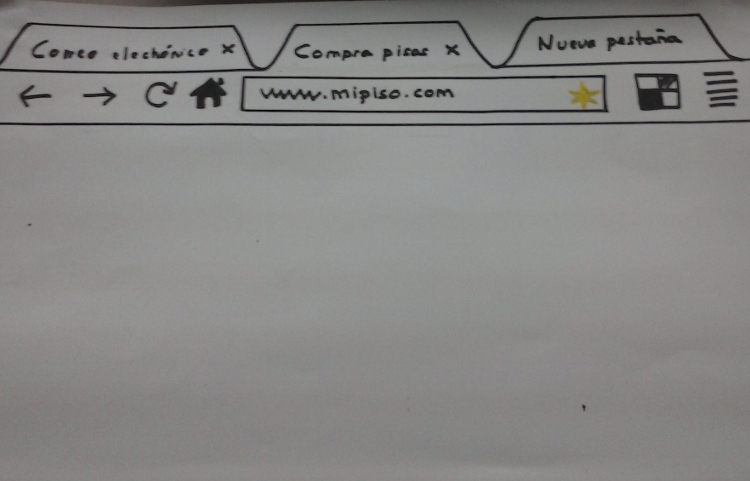 Correo electrónico x
Compra pisos x
Nueva pestaña
www.mipiso.com